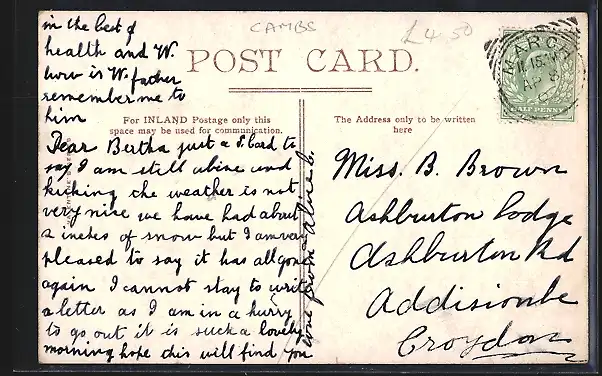 CAMBS
£4.50
POST CARD.
MARCH
AP 8
HALFPENNY
For INLAND Postage only this
space may be used for communication.
The Address only to be written
here
Dear Bertha just a P. Card to
say I am still alive and
kicking the weather is not
very nice we have had about
2 inches of snow but I am very
pleased to say it has all gone
again I cannot stay to write
a letter as I am in a hurry
to go out it is such a lovely
morning hope this will find you
in the best of
health and W.
how is W. father
remember me to
him
love from
Miss. B. Brown
Ashburton Lodge
Ashburton Rd
Addiscombe
Croydon